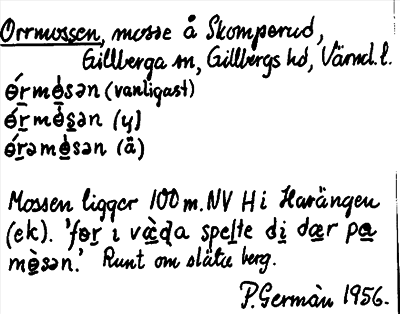 Orrmossen, mosse å Skomperud,
Gillberga sn, Gillbergs hd, Värml. l.
ɵ́r̲mɵ̀sən (vanligast)
ɵ́r̲mɵ̀s̲ən (y)
ɵ́r̲əmɵ̲̀sən (ä)
Mossen ligger 100 m. NV H i Harängen
(ek). 'fɵr̲ ı và̲da spel̲te di̲ da̲r pa̲
mɵ̲̀sən.' Runt om slättu berg.
P. Germàn 1956.